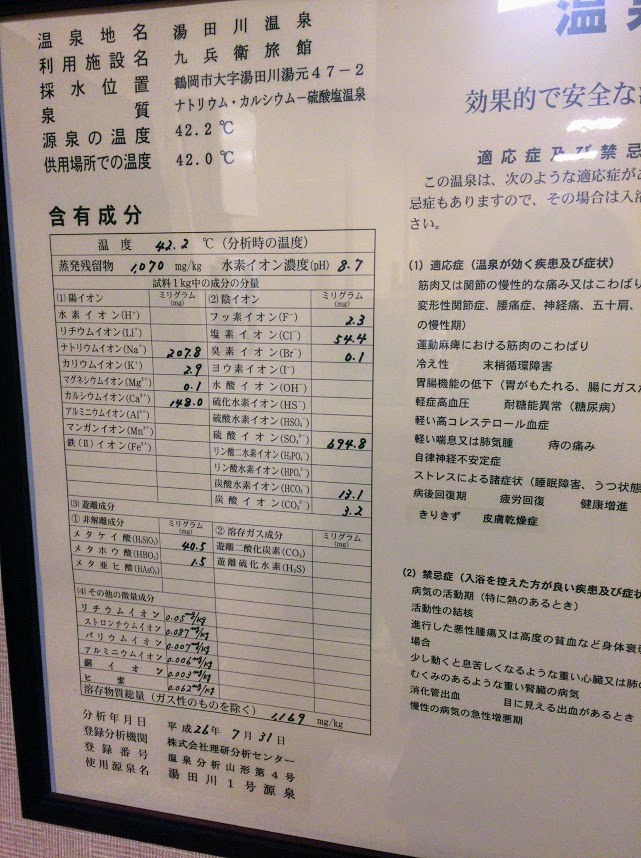 温泉地名 湯田川温泉
利用施設名 九兵衛旅館
採水位置 鶴岡市大字湯田川湯元47-2
泉質 ナトリウム・カルシウム-硫酸塩温泉
源泉の温度 42.2℃
供用場所での温度 42.0℃
含有成分
温度 42.2 ℃(分析時の温度)
蒸発残留物 1,070 mg/kg 水素イオン濃度(pH) 8.7
試料1kg中の成分の分量
(1)陽イオン ミリグラム(mg) (2)陰イオン ミリグラム(mg)
水素イオン(H⁺) フッ素イオン(F⁻) 2.3
リチウムイオン(Li⁺) 塩素イオン(Cl⁻) 54.4
ナトリウムイオン(Na⁺) 207.8 臭素イオン(Br⁻) 0.1
カリウムイオン(K⁺) 2.9 ヨウ素イオン(I⁻)
マグネシウムイオン(Mg²⁺) 0.1 水酸イオン(OH⁻)
カルシウムイオン(Ca²⁺) 148.0 硫化水素イオン(HS⁻)
アルミニウムイオン(Al³⁺) 硫酸水素イオン(HSO₄⁻)
マンガンイオン(Mn²⁺) 硫酸イオン(SO₄²⁻) 694.8
鉄(Ⅱ)イオン(Fe²⁺) リン酸二水素イオン(H₂PO₄⁻)
リン酸水素イオン(HPO₄²⁻)
炭酸水素イオン(HCO₃⁻) 13.1
炭酸イオン(CO₃²⁻) 3.2
(3)遊離成分
①非解離成分 ミリグラム(mg) ②溶存ガス成分 ミリグラム(mg)
メタケイ酸(H₂SiO₃) 40.5 遊離二酸化炭素(CO₂)
メタホウ酸(HBO₂) 1.5 遊離硫化水素(H₂S)
メタ亜ヒ酸(HAsO₂)
(4)その他の微量成分
リチウムイオン 0.05mg/kg
ストロンチウムイオン 0.087mg/kg
バリウムイオン 0.007mg/kg
アルミニウムイオン 0.006mg/kg
銅イオン 0.003mg/kg
ヒ素 0.062mg/kg
溶存物質総量(ガス性のものを除く) 1,169 mg/kg
分析年月日 平成26年7月31日
登録分析機関 株式会社理研分析センター
登録番号 温泉分析山形第4号
使用源泉名 湯田川1号源泉
温泉
効果的で安全な
適応症及び禁忌
この温泉は、次のような適応症があ
忌症もありますので、その場合は入浴
さい。
(1) 適応症(温泉が効く疾患及び症状)
筋肉又は関節の慢性的な痛み又はこわばり
変形性関節症、腰痛症、神経痛、五十肩、
の慢性期)
運動麻痺における筋肉のこわばり
冷え性 末梢循環障害
胃腸機能の低下(胃がもたれる、腸にガスが
軽症高血圧 耐糖能異常(糖尿病)
軽い高コレステロール血症
軽い喘息又は肺気腫 痔の痛み
自律神経不安定症
ストレスによる諸症状(睡眠障害、うつ状態
病後回復期 疲労回復 健康増進
きりきず 皮膚乾燥症
(2) 禁忌症(入浴を控えた方が良い疾患及び症状
病気の活動期(特に熱のあるとき)
活動性の結核
進行した悪性腫瘍又は高度の貧血など身体衰
場合
少し動くと息苦しくなるような重い心臓又は肺の
むくみのあるような重い腎臓の病気
消化管出血 目に見える出血があるとき
慢性の病気の急性増悪期